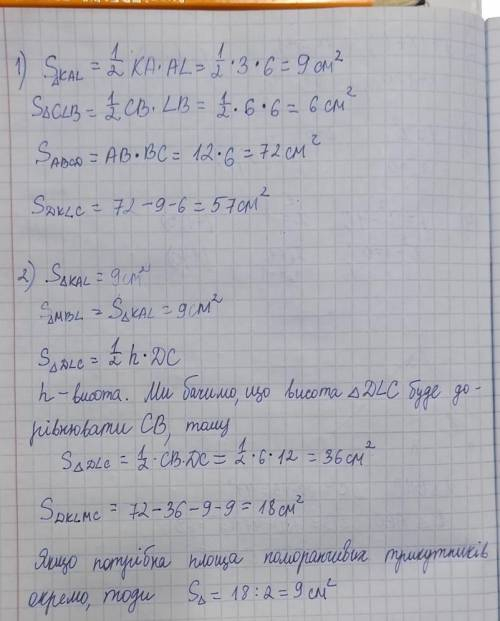 1) S△KAL = 1/2 KA·AL = 1/2 · 3 · 6 = 9 см²
S△CLB = 1/2 CB · LB = 1/2 · 6 · 6 = 6 см²
SABCD = AB · BC = 12 · 6 = 72 см²
SDKLC = 72 – 9 – 6 = 57 см²
2) S△KAL = 9 см²
S△MBL = S△KAL = 9 см²
S△DLC = 1/2 h · DC
h – висота. Ми бачимо, що висота △DLC буде до-
рівнювати CB, тому
S△DLC = 1/2 · CB · DC = 1/2 · 6 · 12 = 36 см²
SDKLMC = 72 – 36 – 9 – 9 = 18 см²
Якщо потрібна площа поморанчивих трикутників
окремо, тоди S△ = 18 : 2 = 9 см²